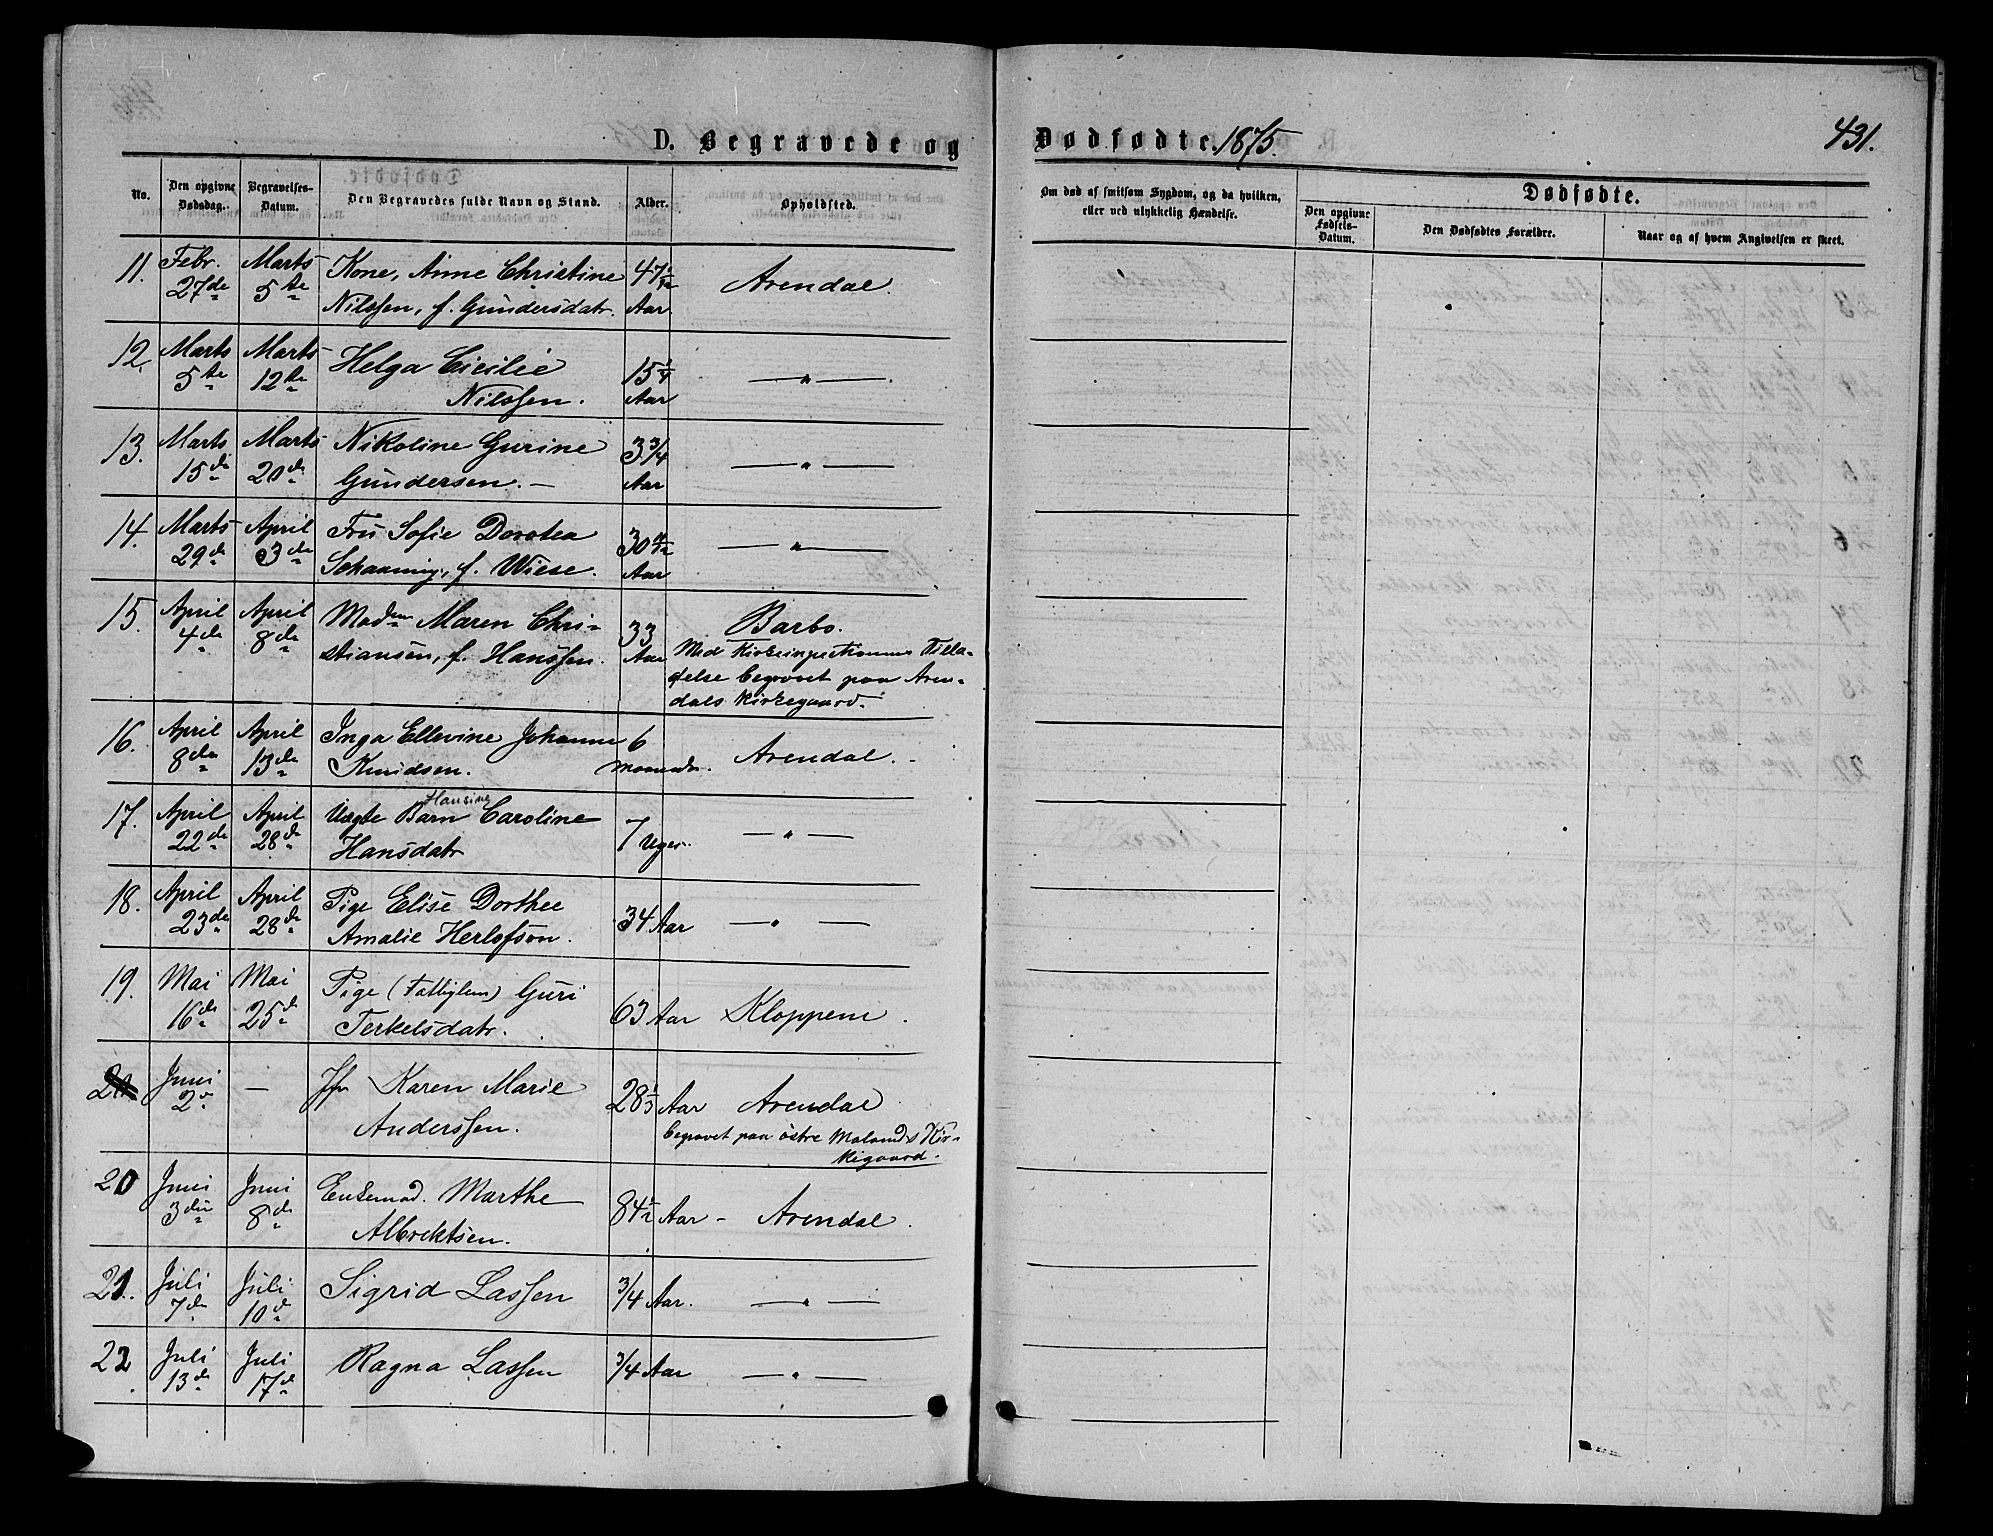 D. Begravede og Dødfødte. 1875. 431.
No. Den opgivne Dødsdag. Begravelses-Datum. Den Begravedes fulde Navn og Stand. Alder. Opholdsted. Om død af smitsom Sygdom, og da hvilken, eller ved ulykkelig Hændelse. Dødfødte.
Den opgivne Fødsels-Datum. Den Dødfødtes Forældre. Naar og af hvem Angivelsen er skeet.
11. Febr. Marts Kone, Anne Christine 47
27de 5te Nilssen, f. Gundersdatr. Aar Arendal.
12. Marts Marts Helga Cicilie 15 1/4
5te 12te Nilssen. Aar — " —
13. Marts Marts Nikoline Gurine 3 3/4
15de 20de Gundersen. — Aar — " —
14. Marts April Fru Sofie Dorotea 30
29de 3de Schanning, f. Wiese. Aar — " —
15. April April Madm Maren Chri- 33 Barbo.
4de 8de stiansen, f. Hanssen. Aar Med Kirkeinspectionens Tilla-
delse begravet paa Aren-
dals Kirkegaard.
16. April April Inga Ellevine Johanne 6
8de 13de Knudsen. Maaneder. Arendal. -
17. April April Uægte Barn Hansine Caroline
22de 28de Hansdatr 7 Uger. — " —
18. April April Pige Elise Dorthee
23de 28de Amalie Herlofson. 34 Aar — " —
19. Mai Mai Pige (Fattiglem) Guri
16de 25de Terkelsdatr. 63 Aar Kloppene.
Juni — Jfr Karen Marie
2de Anderssen. 28 1/3 Aar Arendal.
begravet paa østre Molands Kir-
kegaard.
20 Juni Juni Enkemad. Marthe
3die 8de Albrektsen. 84 1/2 Aar - Arendal.
21. Juli Juli Sigrid Lassen 3/4 Aar. — " —
7de 10de
22. Juli Juli Ragna Lassen 3/4 Aar — " —
13de 17de